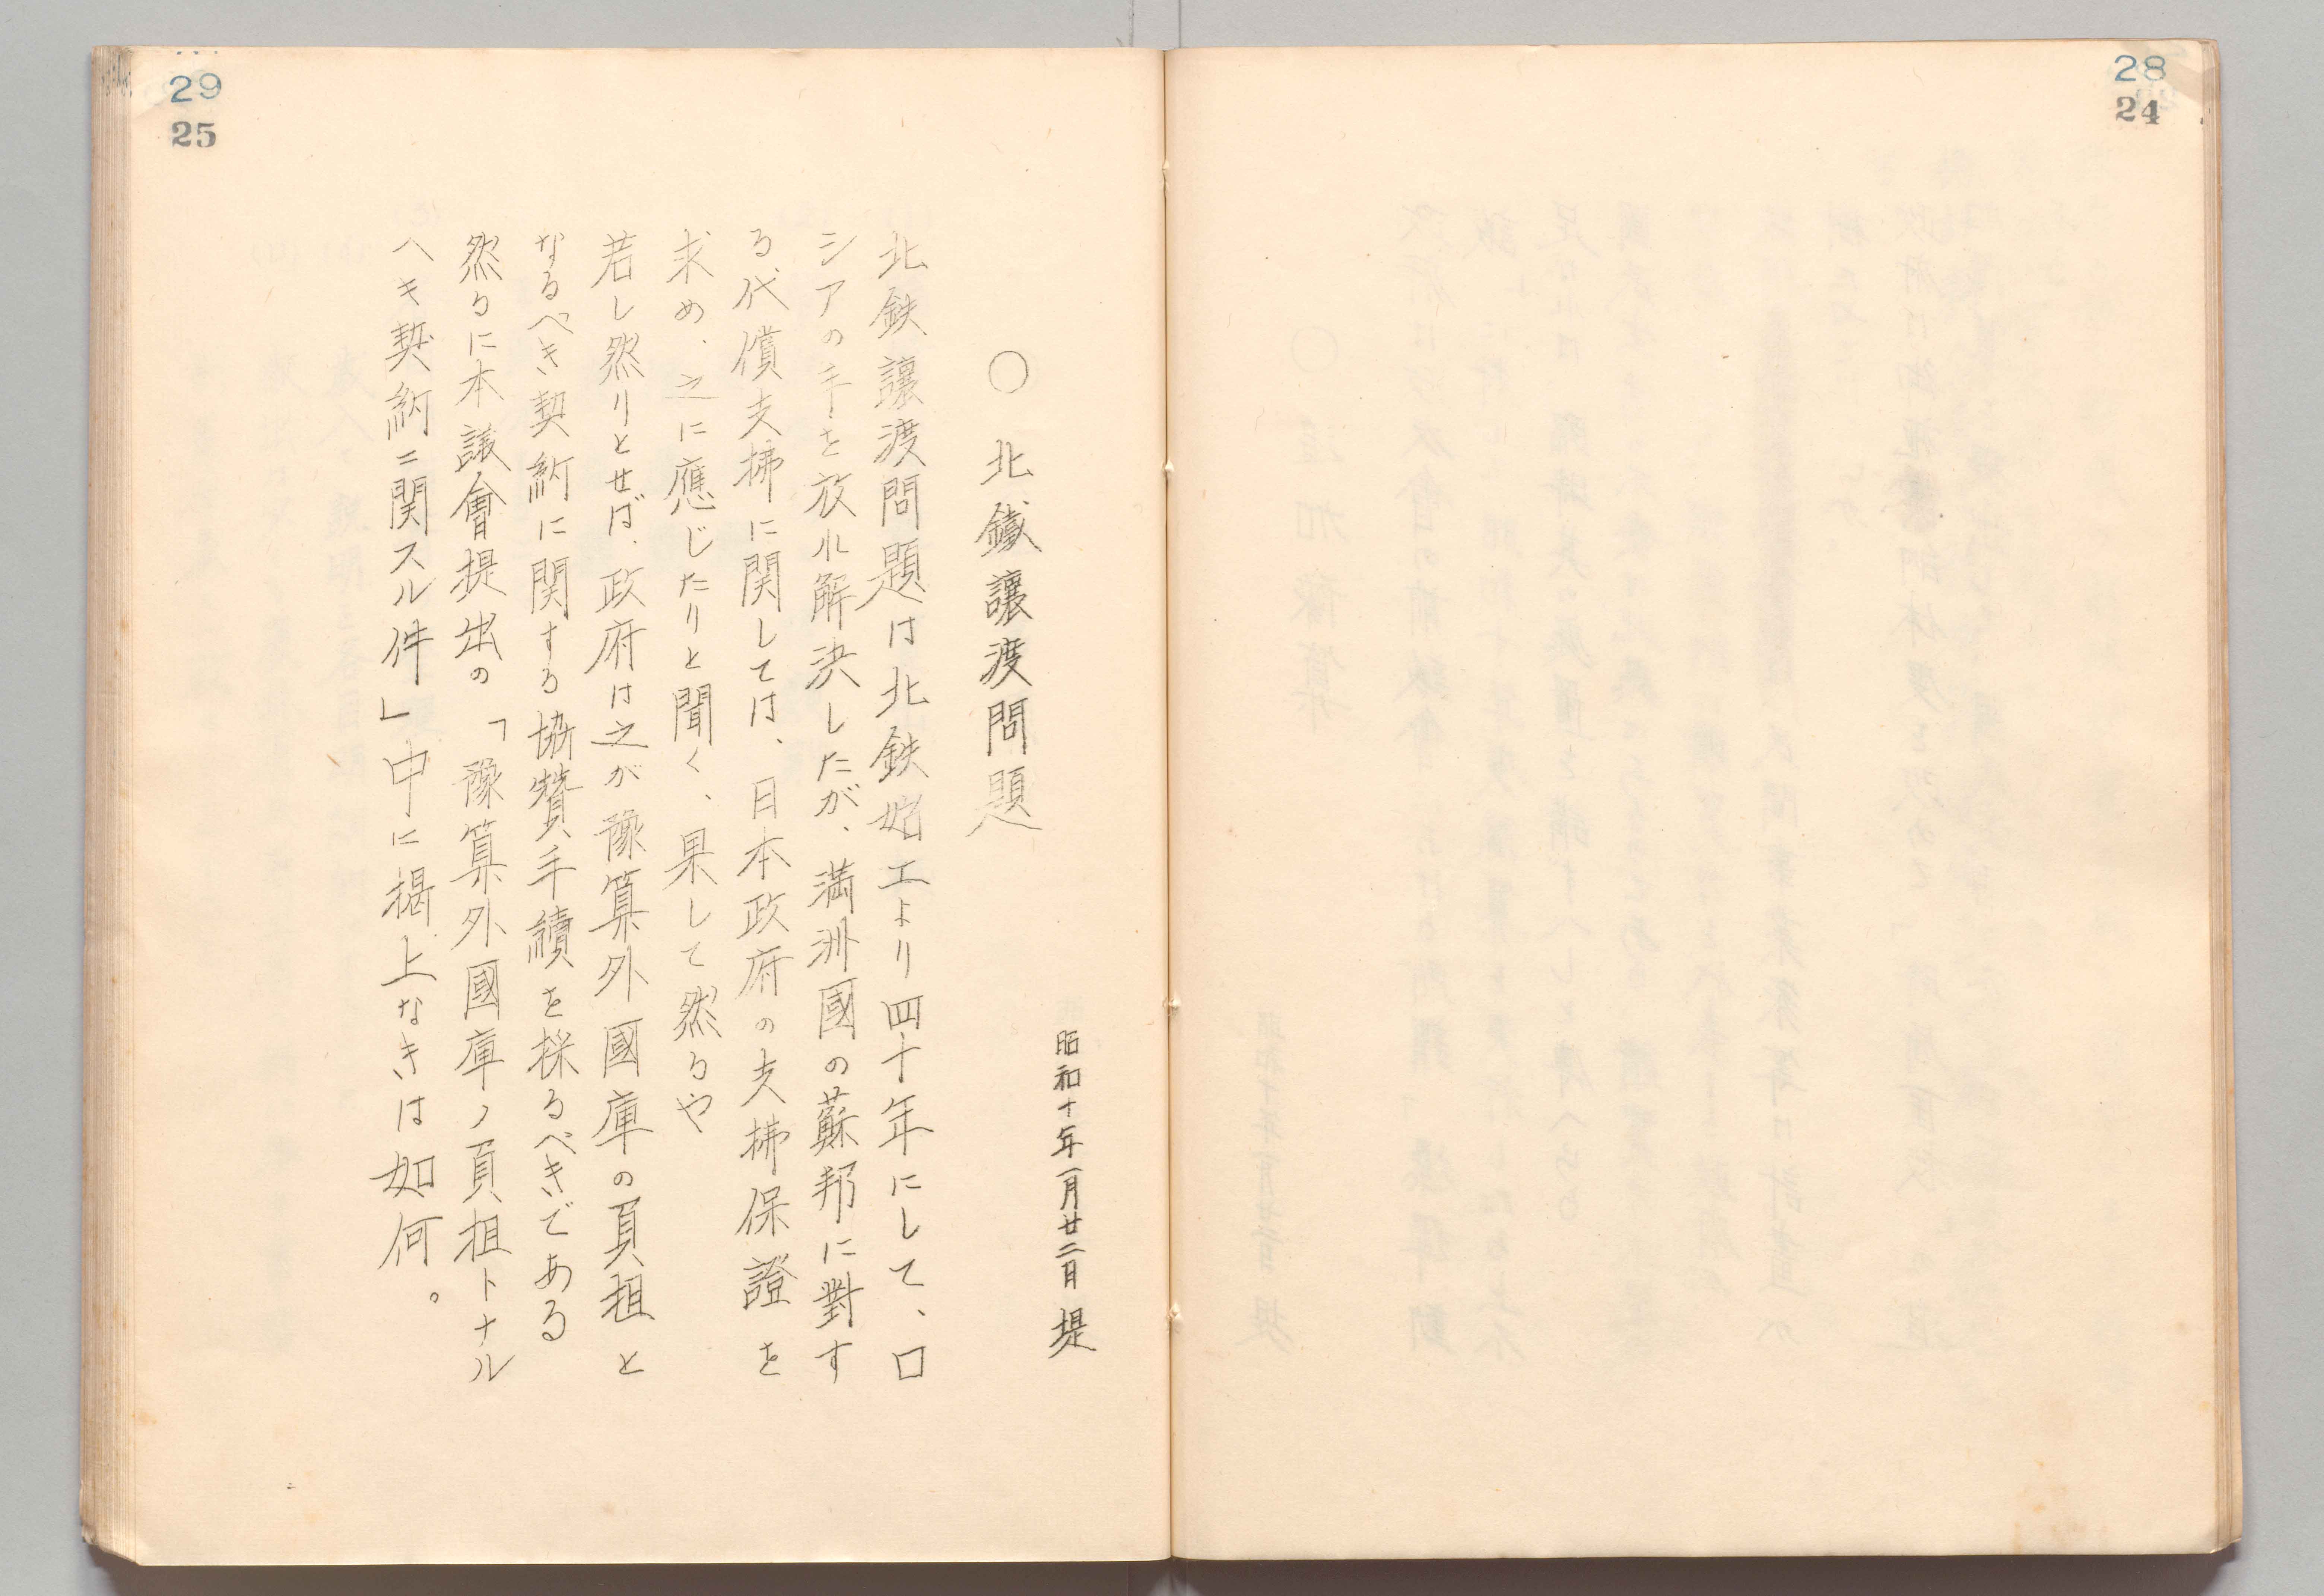 28
24
29
25
昭和十年一月廿二日 堤
○ 北鐵讓渡問題
北鉄讓渡問題は北鉄始工より四十年にして、ロ
シアの手を放れ解決したが、満洲國の蘇邦に對す
る代償支拂に関しては、日本政府の支拂保證を
求め、之に應じたりと聞く、果して然るや
若し然りとせば、政府は之が豫算外國庫の負担と
なるべき契約に関する協賛手續を採るべきである
然るに本議會提出の「豫算外國庫ノ負担トナル
ヘキ契約ニ関スル件」中に掲上なきは如何。